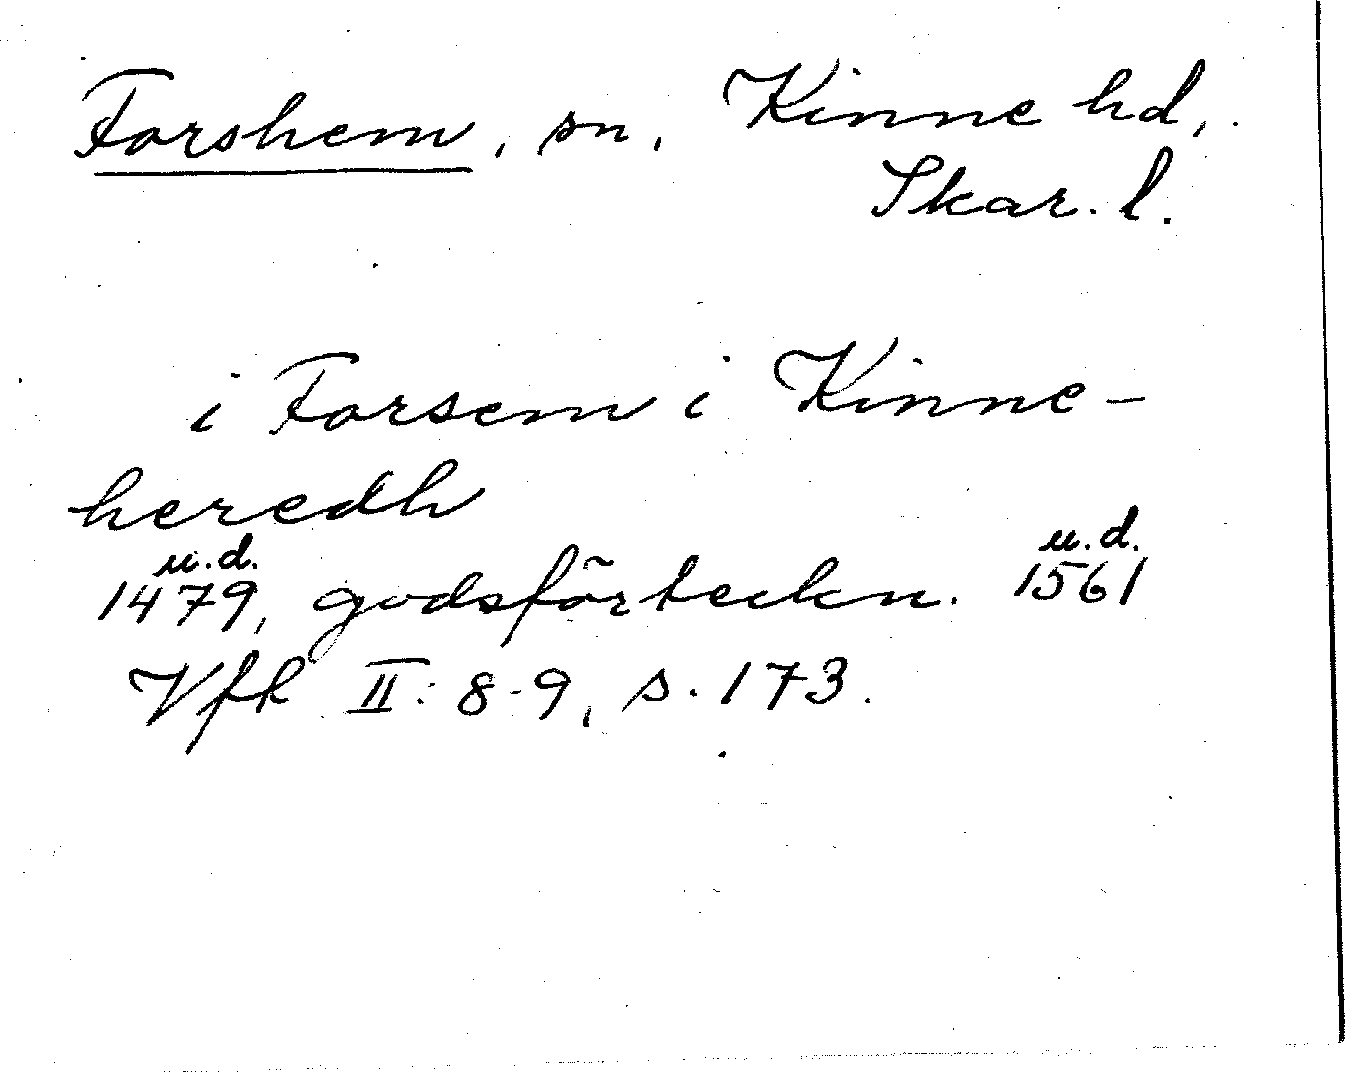 Forshem, sn, Kinne hd,
Skar. l.
i Forsem i Kinne-
heredh
u.d. u.d.
1479, godsförteckn. 1561
Vfh II: 8-9, s. 173.